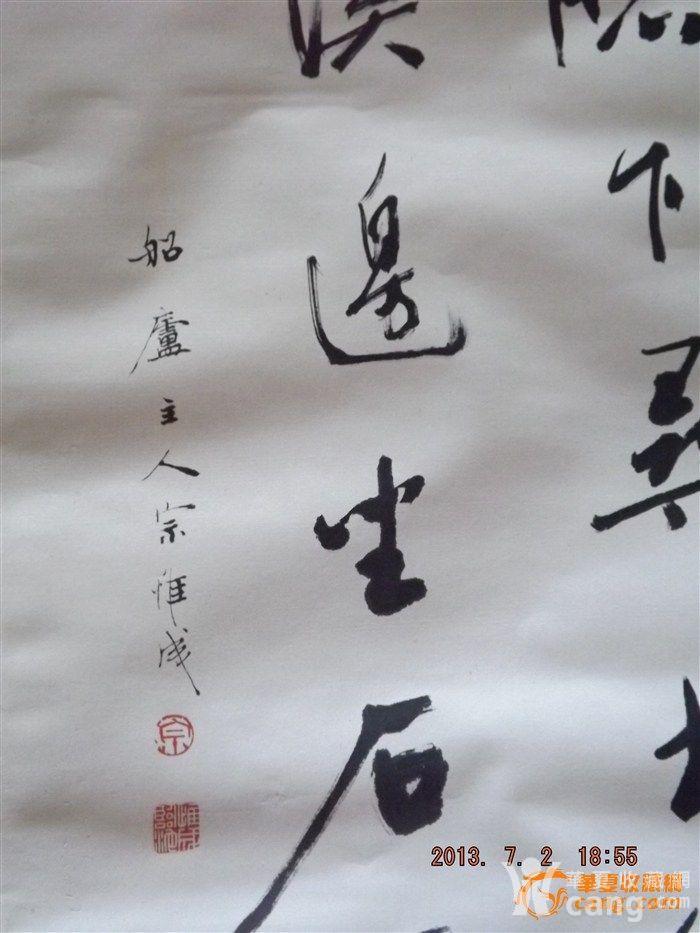 下尋
溪邊坐石
船廬主人宗惟成
宗
2013. 7. 2 18:55
華夏收藏網
cang.com